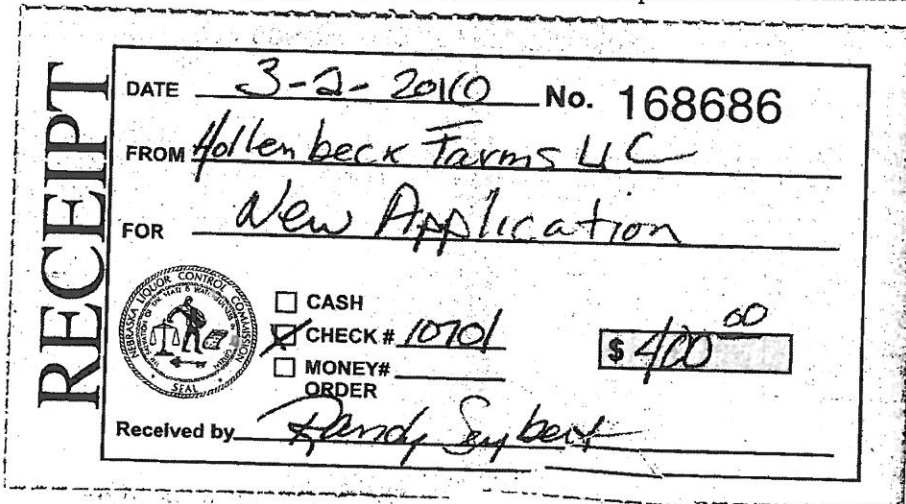 RECEIPT
DATE 3-2-2010 No. 168686
FROM Hollenbeck Farms LLC
FOR New Application
NEBRASKA LIQUOR CONTROL COMMISSION
SEAL
CASH
CHECK # 10701
$ 400 00
MONEY#
ORDER
Received by Randy Seybert